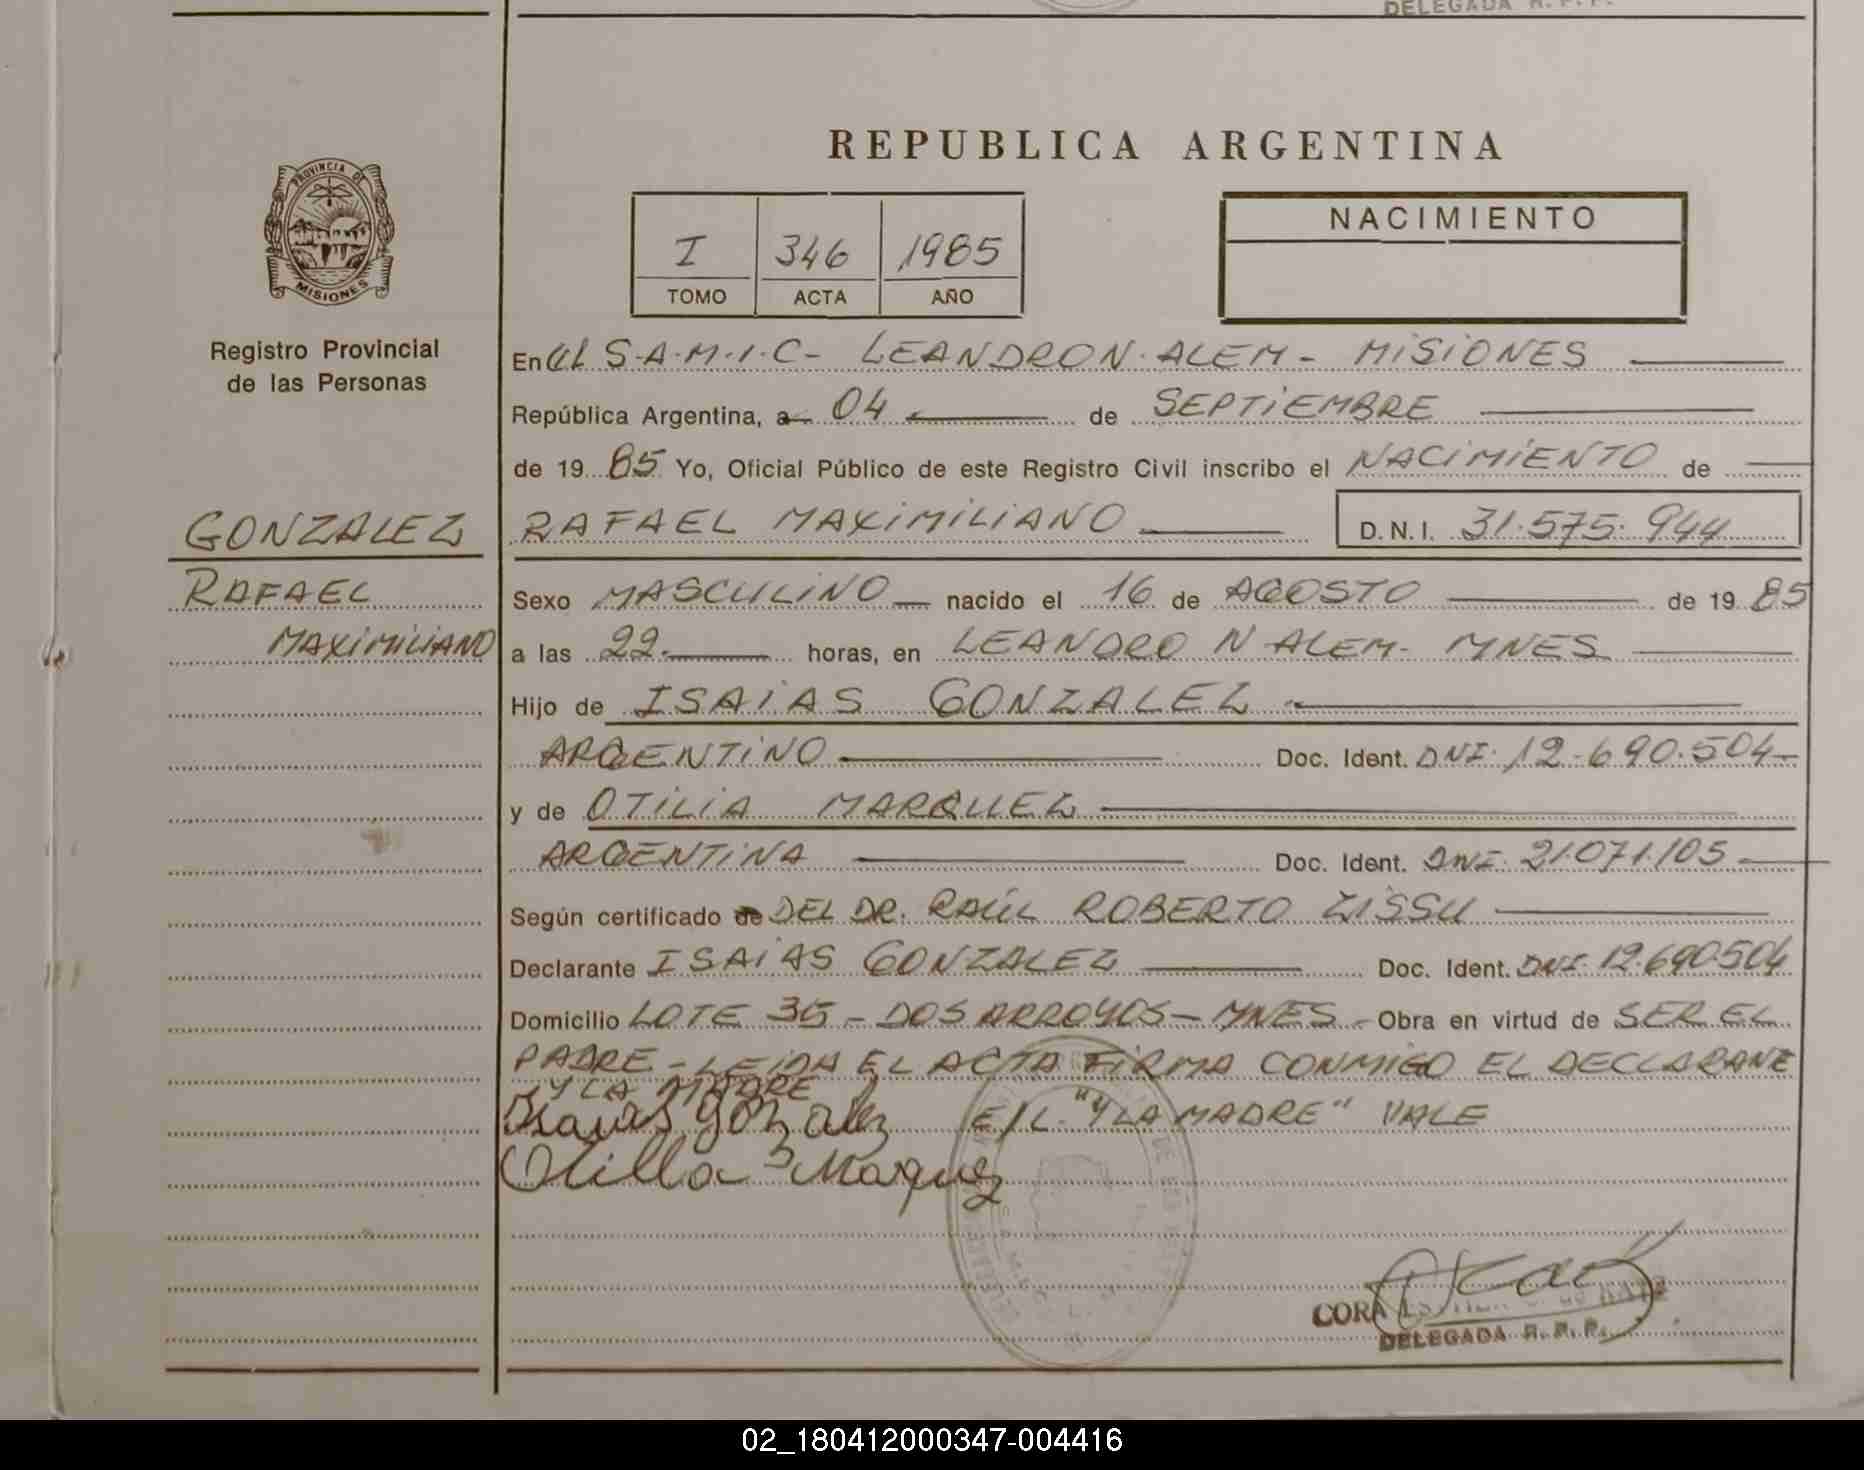 DELEGADA R. P. P.
REPUBLICA ARGENTINA
PROVINCIA DE
MISIONES
Registro Provincial
de las Personas
I 346 1985
TOMO ACTA AÑO
NACIMIENTO
En el S.A.M.I.C- LEANDRO N. ALEM - MISIONES
República Argentina, a 04 de SEPTIEMBRE
de 19 85 Yo, Oficial Público de este Registro Civil inscribo el NACIMIENTO de
GONZALEZ
RAFAEL
MAXIMILIANO
RAFAEL MAXIMILIANO D.N.I. 31.575.944
Sexo MASCULINO nacido el 16 de AGOSTO de 19 85
a las 22 horas, en LEANDRO N ALEM- MNES
Hijo de ISAIAS GONZALEZ
ARGENTINO Doc. Ident. DNI. 12.690.504
y de OTILIA MARQUEZ
ARGENTINA Doc. Ident. DNI 21.071.105
Según certificado de DEL DR. RAÚL ROBERTO ZISSU
Declarante ISAIAS GONZALEZ Doc. Ident. DNI. 12.690504
Domicilio LOTE 35 - DOS ARROYOS - MNES - Obra en virtud de SER EL
PADRE - LEIDA EL ACTA FIRMA CONMIGO EL DECLARANE
Y LA MADRE
Isaias Gonzalez E/L. "Y LA MADRE" VALE
Otilla Marquez
CORA
DELEGADA R. P. P.
02_180412000347-004416